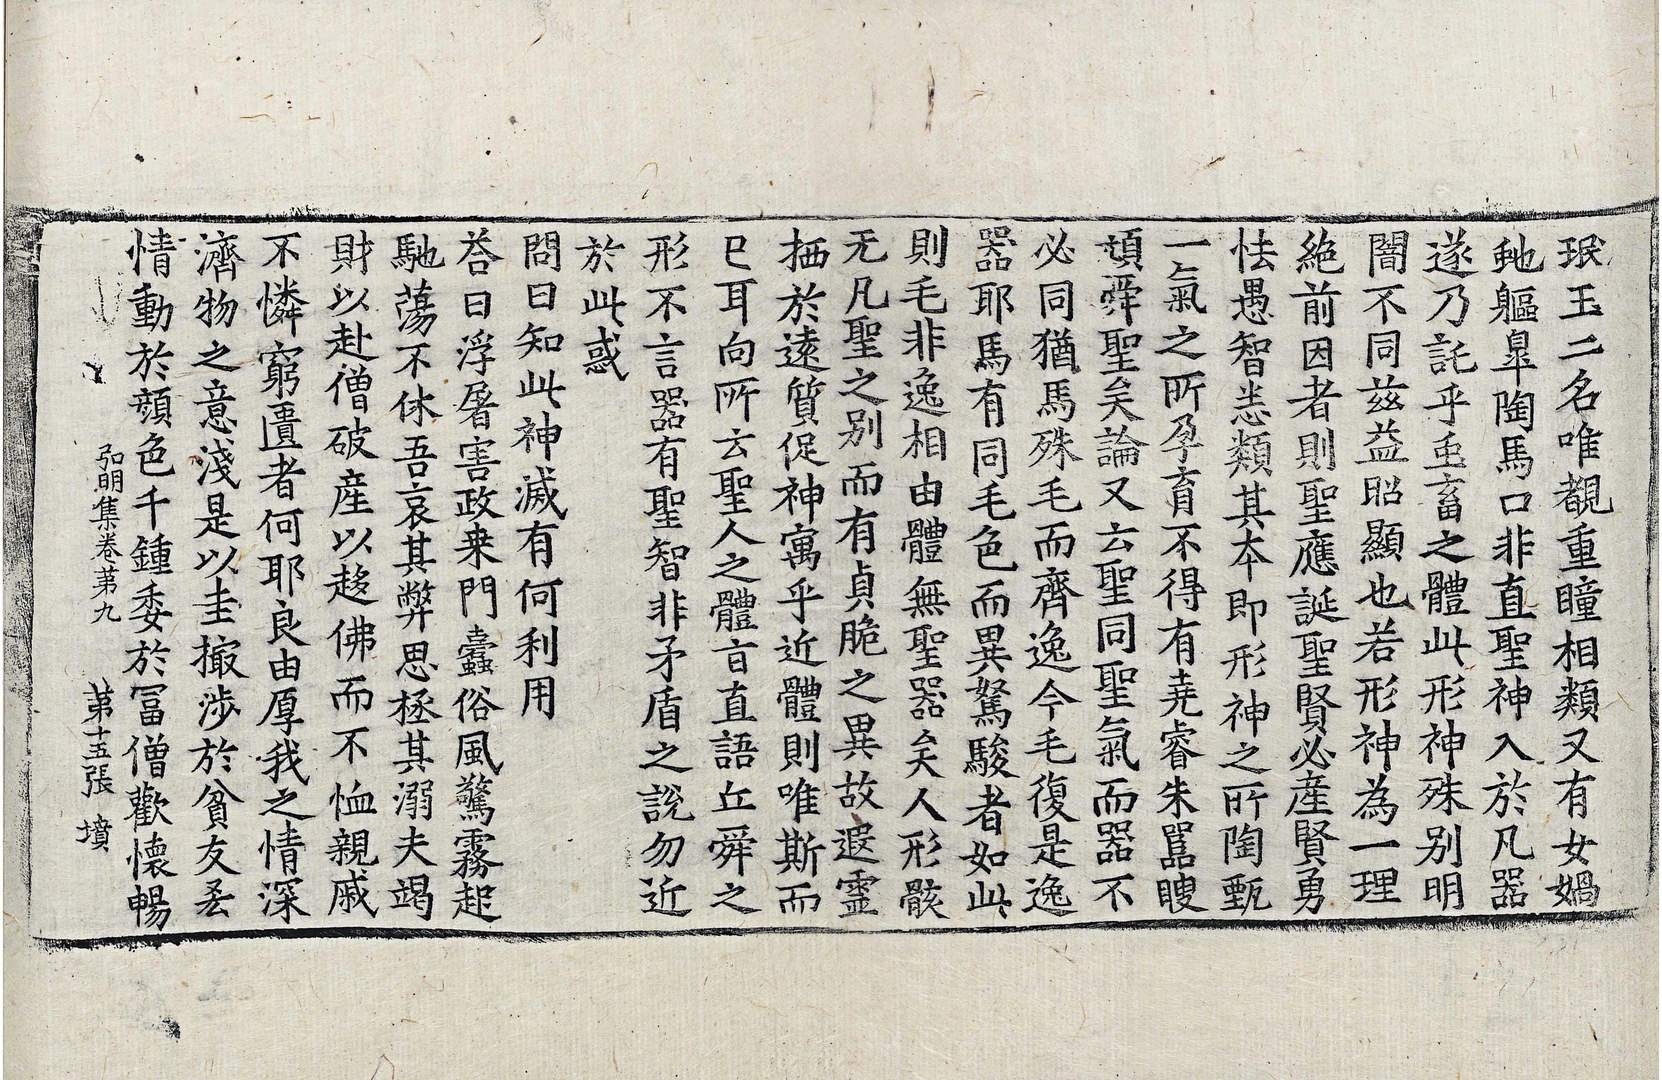 珉玉二名唯覩重瞳相類又有女媧
虵軀皐陶馬口非直聖神入於凡器
遂乃託乎䖝畜之體此形神殊别明
闇不同兹益昭顯也若形神為一理
絶前因者則聖應誕聖賢必産賢勇
怯愚智悉類其本即形神之所陶甄
一氣之所孕育不得有堯睿朱嚚瞍
頑舜聖矣論又云聖同聖氣而器不
必同猶馬殊毛而齊逸今毛復是逸
器耶馬有同毛色而異駑駿者如此
則毛非逸相由體無聖器矣人形骸
无凡聖之别而有貞脆之異故遐靈
栖於遠質促神寓乎近體則唯斯而
巳耳向所云聖人之體旨直語丘舜之
形不言器有聖智非矛盾之說勿近
於此惑
問曰知此神滅有何利用
荅曰浮屠害政桒門蠹俗風驚霧起
馳蕩不休吾哀其弊思拯其溺夫竭
財以赴僧破産以趍佛而不恤親戚
不憐窮匱者何耶良由厚我之情深
濟物之意淺是以圭撮渉於貧友𠫤
情動於顔色千鍾委於冨僧歡懷暢
弘明集卷苐九 苐十五張 墳